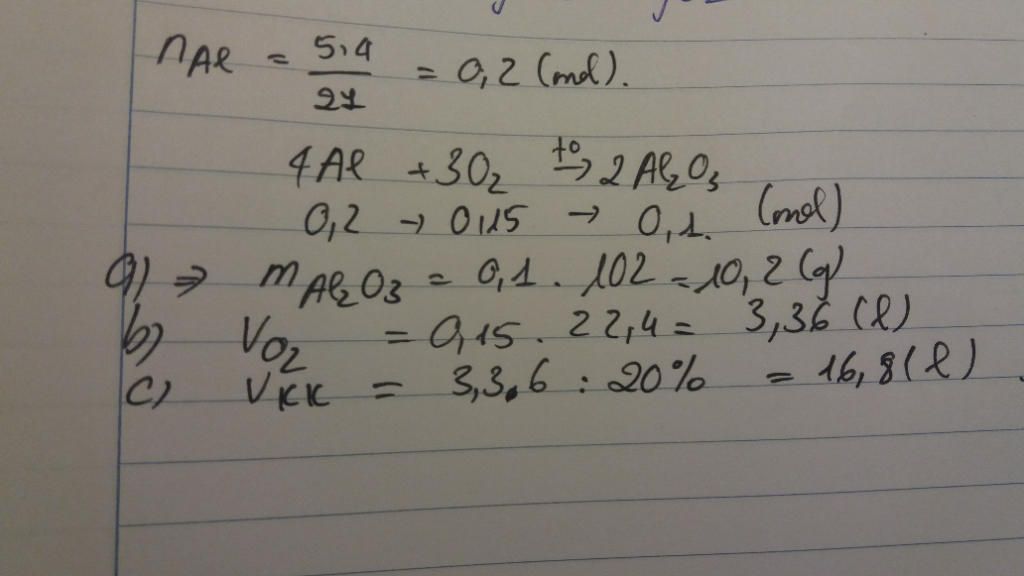 nAl = 5,4/27 = 0,2 (mol).
4Al + 3O₂ t⁰→ 2Al₂O₃
0,2 → 0,15 → 0,1. (mol)
a) ⇒ mAl₂O₃ = 0,1 . 102 = 10,2 (g)
b) VO₂ = 0,15 . 22,4 = 3,36 (l)
c) VKK = 3,3.6 : 20% = 16,8 (l)